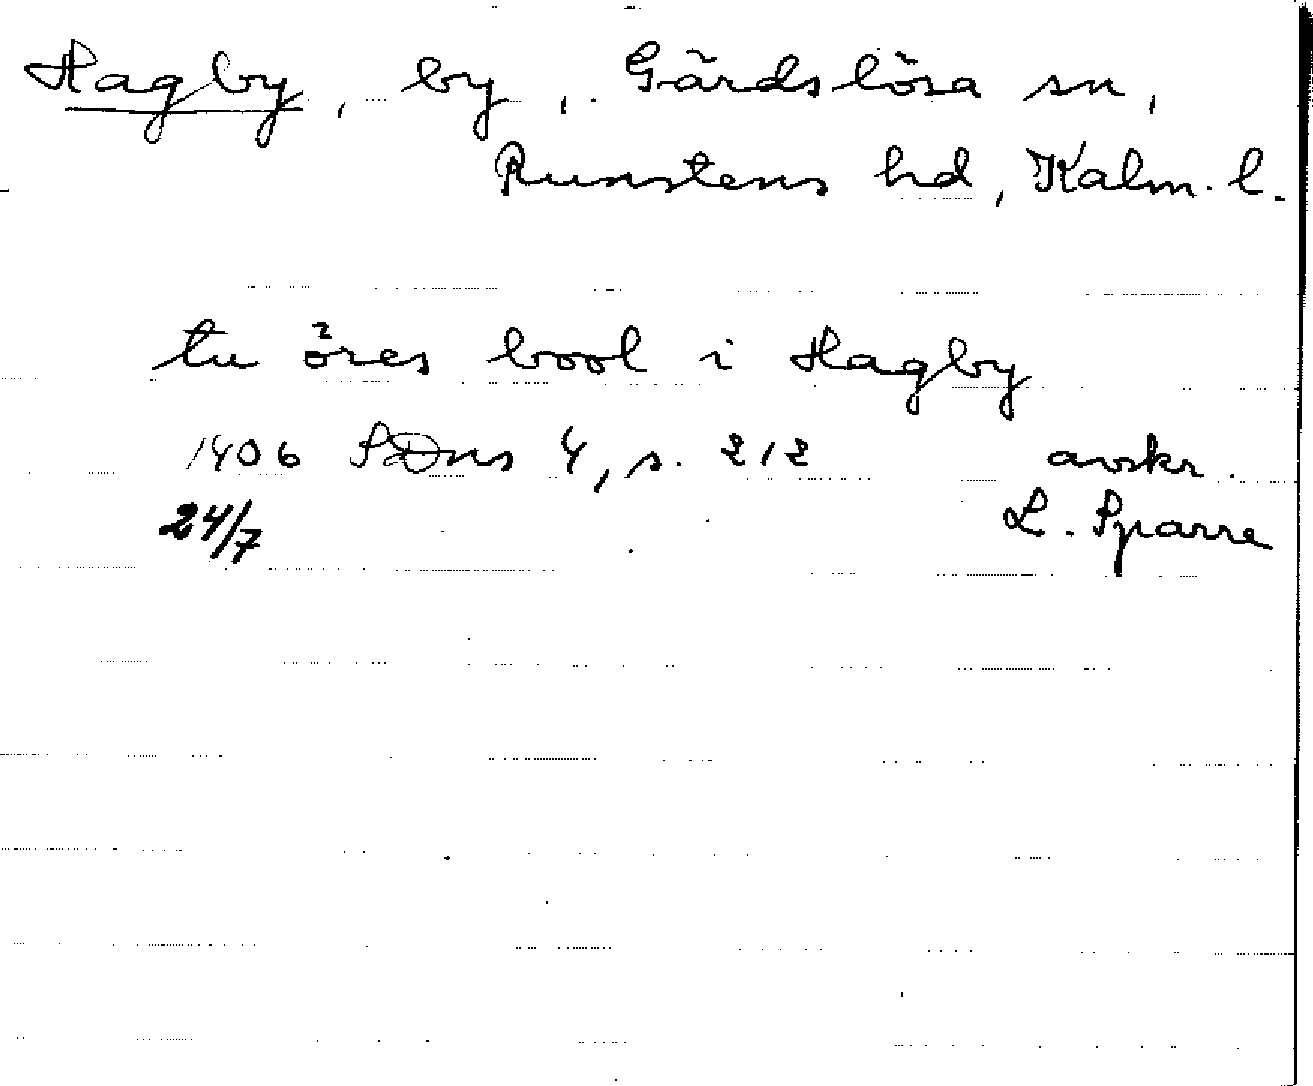 Hagby, by, Gärdslösa sn,
Runstens hd, Kalm. l.
tu öres bool i Hagby
1406 SDns 4, s. 212 avskr.
24/7 L. Sparre